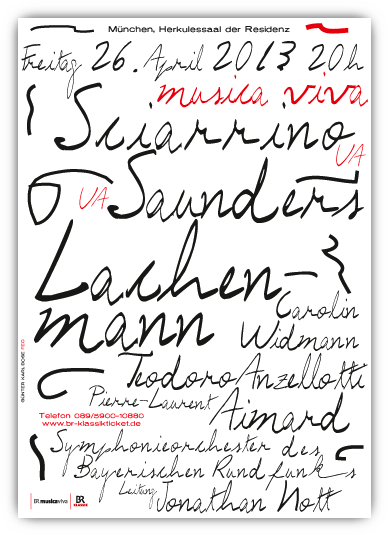 München, Herkulessaal der Residenz
Freitag 26. April 2013 20h
musica viva
Sciarrino
UA
UA Saunders
Lachen-
mann
Carolin
Widmann
Teodoro Anzellotti
Pierre-Laurent Aimard
Telefon 089/5900-10880
www.br-klassikticket.de
Symphonieorchester des
Bayerischen Rundfunks
Leitung Jonathan Nott
GÜNTER KARL BOSE FEC
BR musica viva
BR KLASSIK